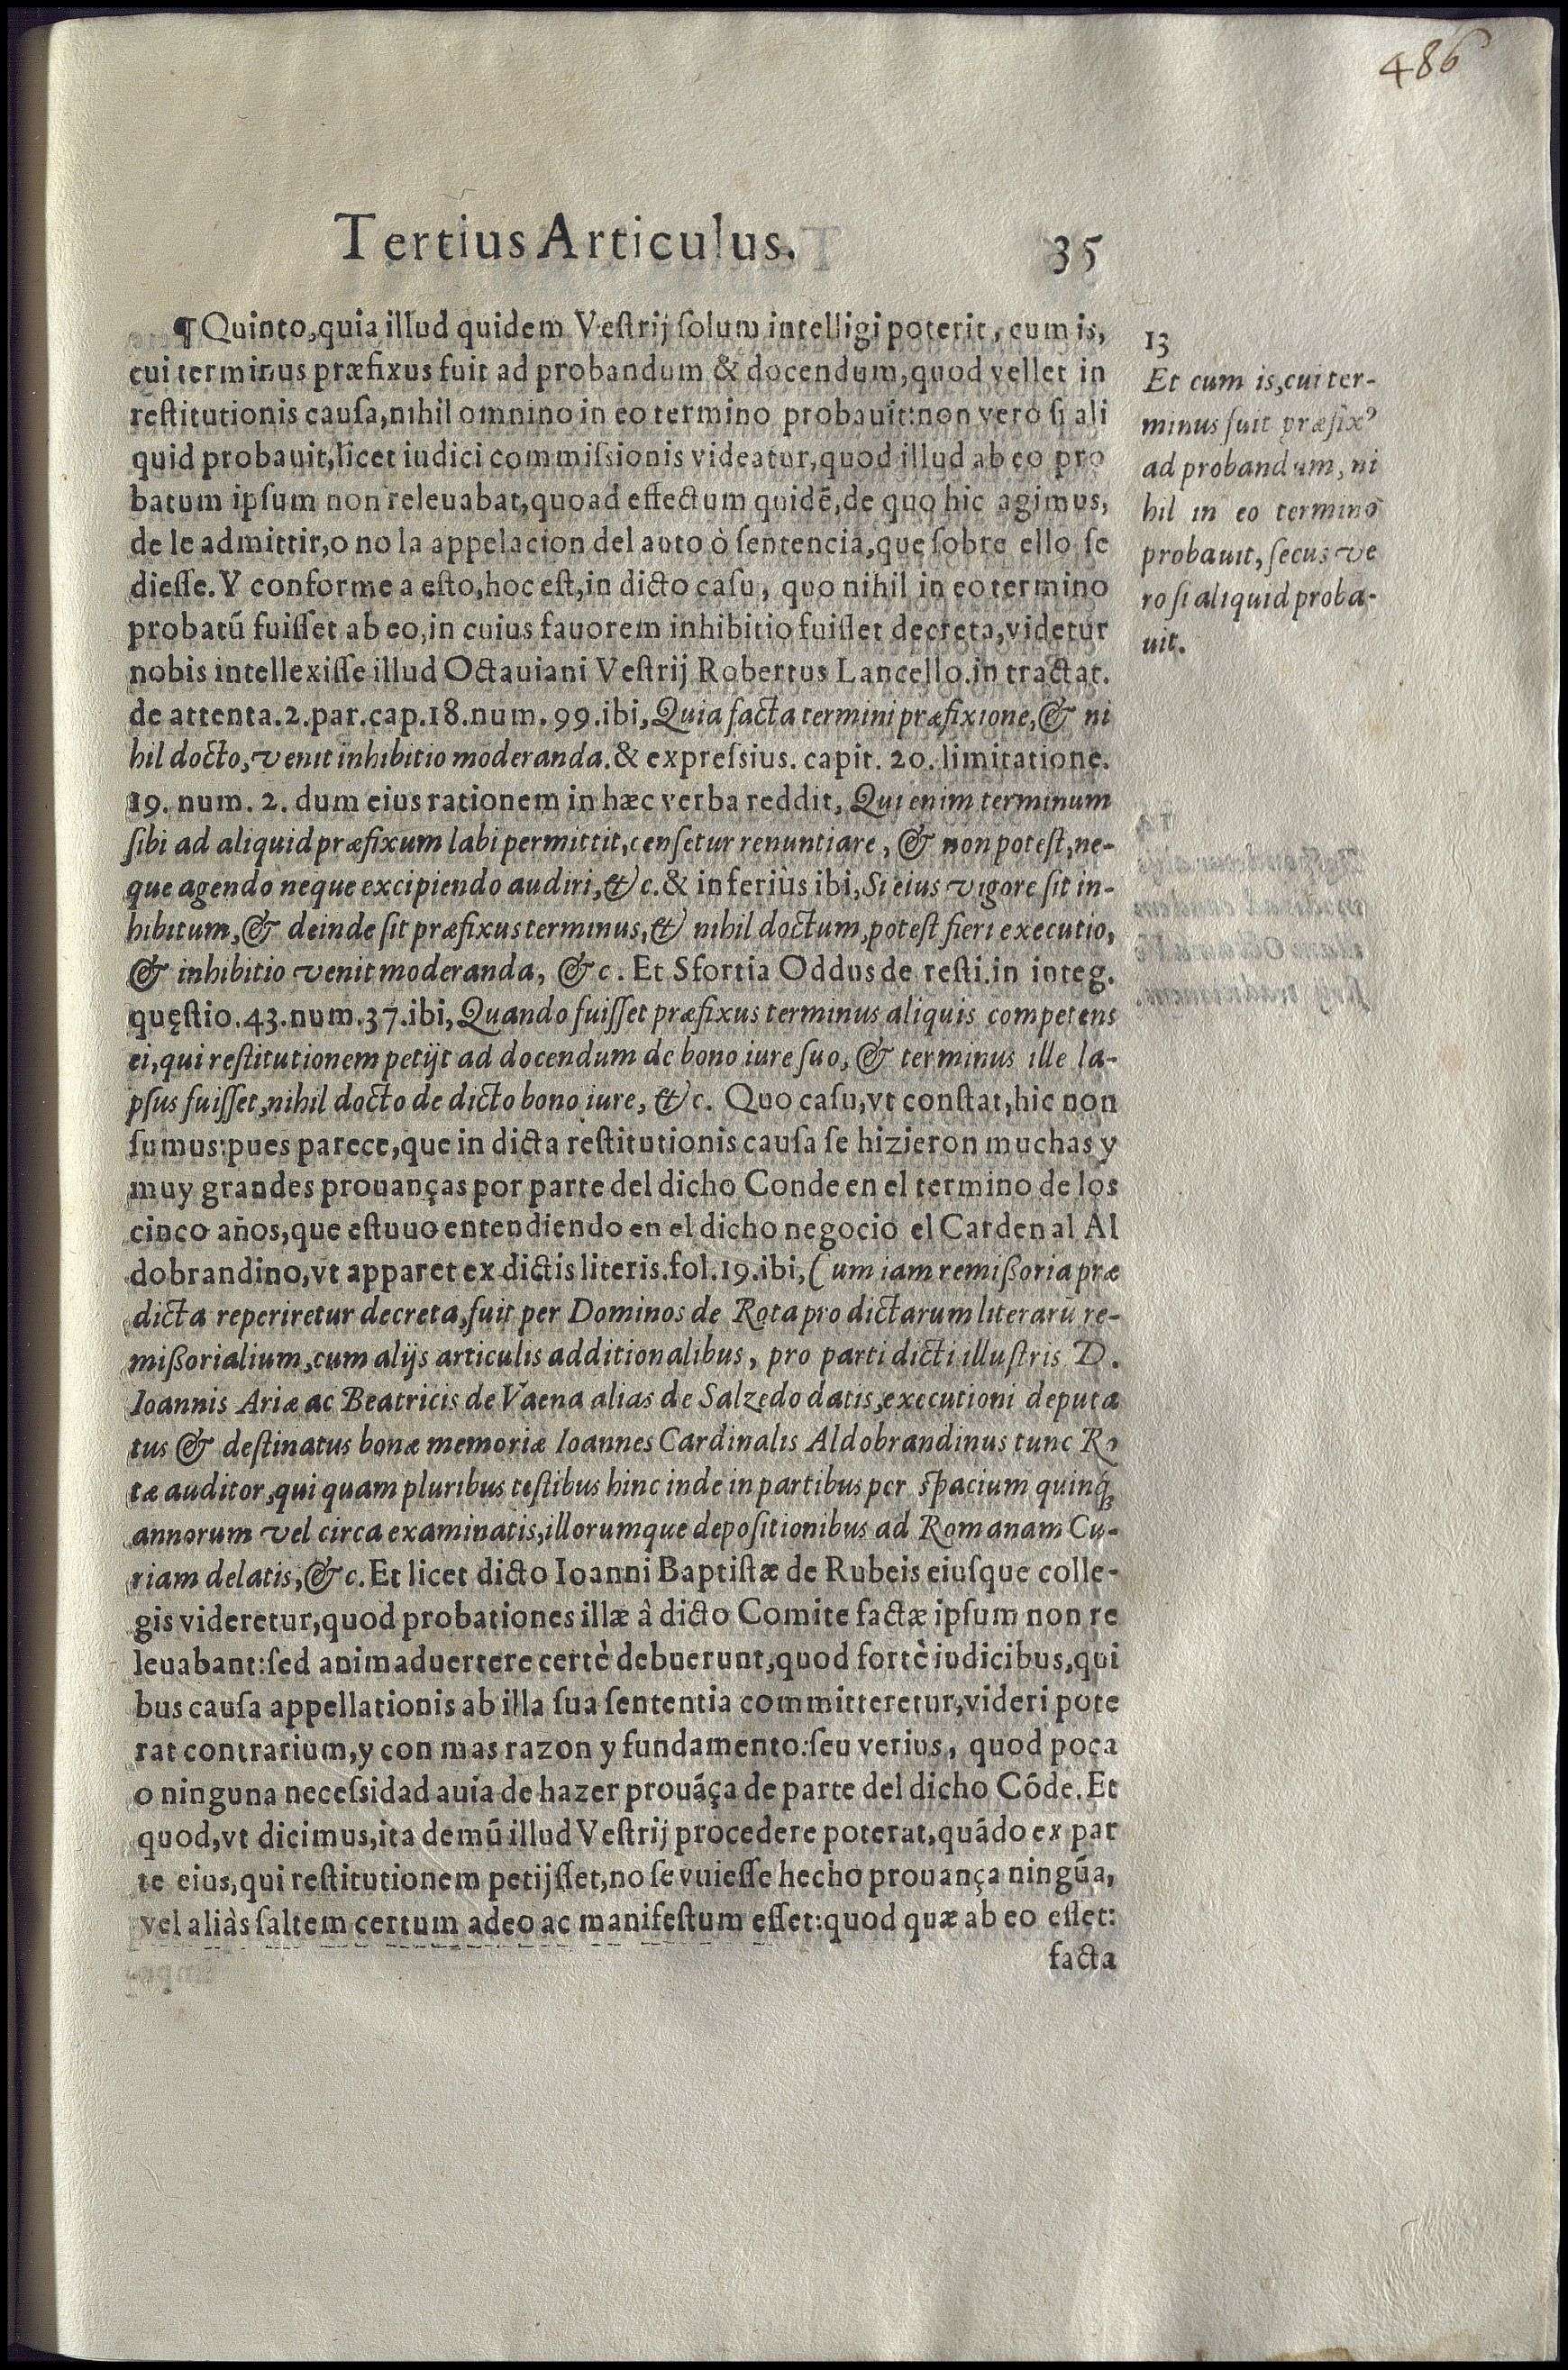 486
Tertius Articulus. 35
¶ Quinto, quia illud quidem Vestrij solum intelligi poterit, cum is,
cui terminus præfixus fuit ad probandum & docendum, quod vellet in
restitutionis causa, nihil omnino in eo termino probauit: non vero si ali
quid probauit, licet iudici commissionis videatur, quod illud ab eo pro
batum ipsum non releuabat, quoad effectum quidẽ, de quo hic agimus,
de le admittir, o no la appelacion del auto ò sentencia, que sobre ello se
diesse. Y conforme a esto, hoc est, in dicto casu, quo nihil in eo termino
probatũ fuisset ab eo, in cuius fauorem inhibitio fuisset decreta, videtur
nobis intellexisse illud Octauiani Vestrij Robertus Lancello. in tractat.
de attenta. 2. par. cap. 18. num. 99. ibi, Quia facta termini præfixione, & ni
hil docto, venit inhibitio moderanda. & expressius. capit. 20. limitatione.
19. num. 2. dum eius rationem in hæc verba reddit, Qui enim terminum
sibi ad aliquid præfixum labi permittit, censetur renuntiare, & non potest, ne-
que agendo neque excipiendo audiri, &c. & inferiùs ibi, Si eius vigore sit in-
hibitum, & deinde sit præfixus terminus, & nihil doctum, potest fieri executio,
& inhibitio venit moderanda, &c. Et Sfortia Oddus de resti. in integ.
quęstio. 43. num. 37. ibi, Quando fuisset præfixus terminus aliquis competens
ei, qui restitutionem petijt ad docendum de bono iure suo, & terminus ille la-
psus fuisset, nihil docto de dicto bono iure, &c. Quo casu, vt constat, hic non
sumus: pues parece, que in dicta restitutionis causa se hizieron muchas y
muy grandes prouanças por parte del dicho Conde en el termino de los
cinco años, que estuuo entendiendo en el dicho negocio el Cardenal Al
dobrandino, vt apparet ex dictis literis. fol. 19. ibi, Cum iam remissoria præ
dicta reperiretur decreta, fuit per Dominos de Rota pro dictarum literarũ re-
missorialium, cum alijs articulis additionalibus, pro parti dicti illustris D.
Ioannis Ariæ ac Beatricis de Vaena alias de Salzedo datis, executioni deputa
tus & destinatus bonæ memoriæ Ioannes Cardinalis Aldobrandinus tunc Ro
tæ auditor, qui quam pluribus testibus hinc inde in partibus per spacium quinq;
annorum vel circa examinatis, illorumque depositionibus ad Romanam Cu-
riam delatis, &c. Et licet dicto Ioanni Baptistæ de Rubeis eiusque colle-
gis videretur, quod probationes illæ â dicto Comite factæ ipsum non re
leuabant: sed animaduertere certè debuerunt, quod fortè iudicibus, qui
bus causa appellationis ab illa sua sententia committeretur, videri pote
rat contrarium, y con mas razon y fundamento: seu verius, quod poca
o ninguna necessidad auia de hazer prouãça de parte del dicho Cõde. Et
quod, vt dicimus, ita demũ illud Vestrij procedere poterat, quãdo ex par
te eius, qui restitutionem petijsset, no se vuiesse hecho prouança ningũa,
vel aliàs saltem certum adeo ac manifestum esset: quod quæ ab eo esset:
facta
13
Et cum is, cui ter-
minus fuit præfix⁹
ad probandum, ni
hil in eo termino
probauit, secus ve
ro si aliquid proba-
uit.